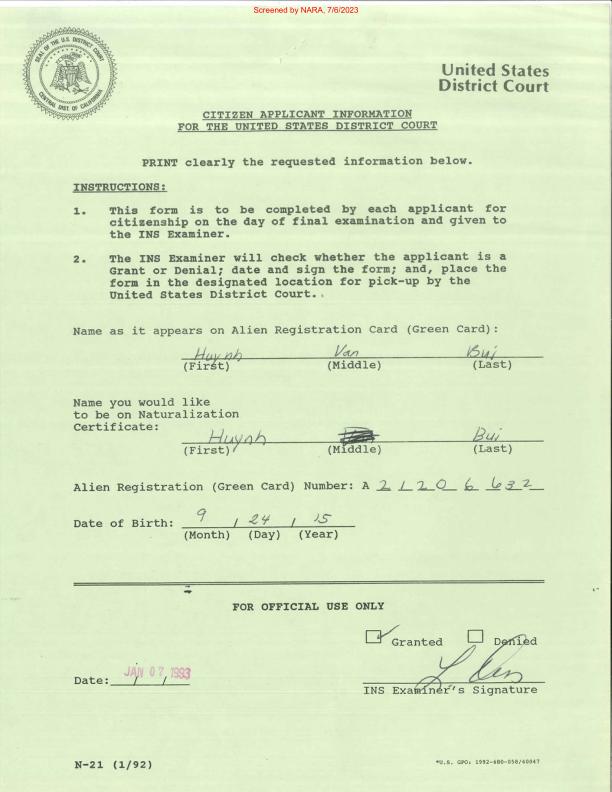 Screened by NARA, 7/6/2023
SEAL OF THE U.S. DISTRICT COURT
CENTRAL DIST. OF CALIFORNIA
United States
District Court
CITIZEN APPLICANT INFORMATION
FOR THE UNITED STATES DISTRICT COURT
PRINT clearly the requested information below.
INSTRUCTIONS:
1. This form is to be completed by each applicant for
citizenship on the day of final examination and given to
the INS Examiner.
2. The INS Examiner will check whether the applicant is a
Grant or Denial; date and sign the form; and, place the
form in the designated location for pick-up by the
United States District Court.
Name as it appears on Alien Registration Card (Green Card):
Huynh Van Bui
(First) (Middle) (Last)
Name you would like
to be on Naturalization
Certificate:
Huynh Bui
(First) (Middle) (Last)
Alien Registration (Green Card) Number: A 21206632
Date of Birth: 9 / 24 / 15
(Month) (Day) (Year)
FOR OFFICIAL USE ONLY
Granted Denied
Date: JAN 07 1993
INS Examiner's Signature
N-21 (1/92)
*U.S. GPO: 1992-680-058/60047